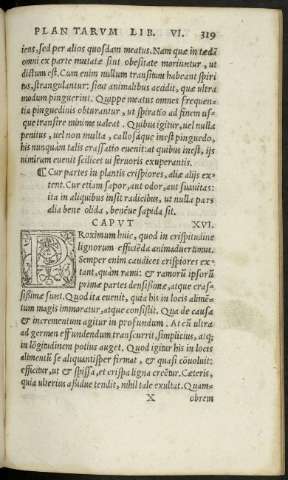 PLANTARVM LIB. VI. 319
iens, sed per alios quosdam meatus. Nam quæ in tædã
omni ex parte mutatæ sint obesitate moriuntur, ut
dictum est. Cum enim nullum transitum habeant spiri
tus, strangulantur: sicut animalibus accidit, quæ ultra
modum pinguerint. Quippe meatus omnes frequen-
tia pinguedinis obturantur, ut spiratio ad finem us-
que transire minime ualeat. Quibus igitur, uel nulla
penitus, uel non multa, callosáque inest pinguedo,
his nunquàm talis crassatio euenit: at quibus inest, ijs
nimirum euenit scilicet ui feruoris exuperantis.
¶ Cur partes in plantis crispiores, aliæ alijs ex-
tent. Cur etiam sapor, aut odor, aut suauitas:
ita in aliquibus insit radicibus, ut nulla pars
alia bene olida, benéue sapida sit.
CAPVT XVI.
PRoximum huic, quod in crispitudine
lignorum efficiẽda animaduertimus.
Semper enim caudices crispiores ex-
tant, quàm rami: & ramorũ ipsorũ
primæ partes densissimæ, atque crass-
sissimæ sunt. Quod ita euenit, quia his in locis alimẽ-
tum magis immoratur, atque consistit. Qua de causa
& incrementum agitur in profundum. At cũ ultra
ad germen effundendum transcurrit, simplicius, atq;
in lõgitudinem potius auget. Quod igitur his in locis
alimentũ se aliquantisper firmat, & quasi cõuoluit:
efficitur, ut & spissa, et crispa ligna creẽtur. Cæteris,
quia ulterius assidue tendit, nihil tale exultat. Quam-
X obrem